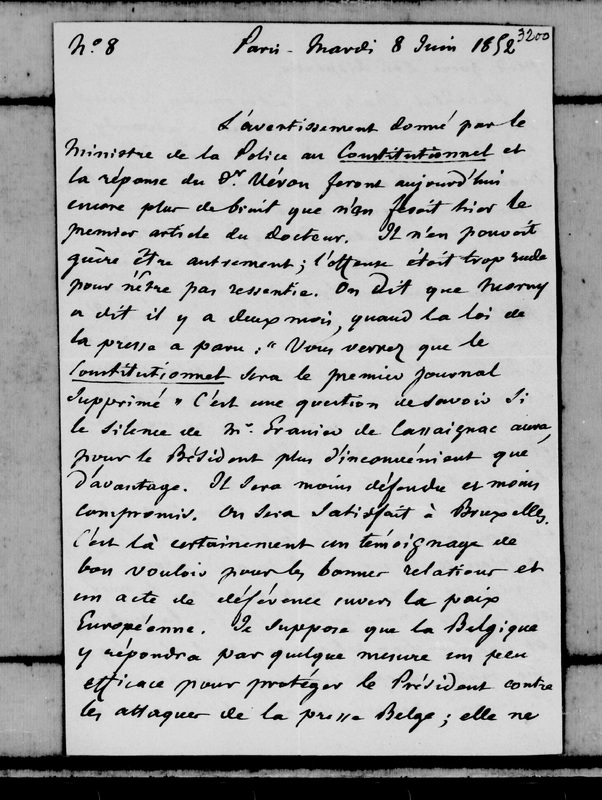 3200
N° 8 Paris - Mardi 8 Juin 1852
L'avertissement donné par le
Ministre de la Police au Constitutionnel et
la réponse du Dr. Véron feront aujourd'hui
encore plus de bruit que n'en fesait hier le
premier article du docteur. Il n'en pouvoit
guère être autrement ; l'offense étoit trop rude
pour n'être pas ressentie. On dit que Morny
a dit il y a deux mois, quand la loi de
la presse a paru : " Vous verrez que le
Constitutionnel sera le premier journal
supprimé " C'est une question de savoir si
le silence de Mr. Granier de Cassaignac aura,
pour le Président plus d'inconvénient que
d'avantage. Il sera moins défendu et moins
compromis. On sera satisfait à Bruxelles.
C'est là certainement un témoignage de
bon vouloir pour les bonnes relations et
un acte de déférence envers la paix
Européenne. Je suppose que la Belgique
y répondra par quelque mesure un peu
efficace pour protéger le Président contre
les attaques de la presse Belge ; elle ne